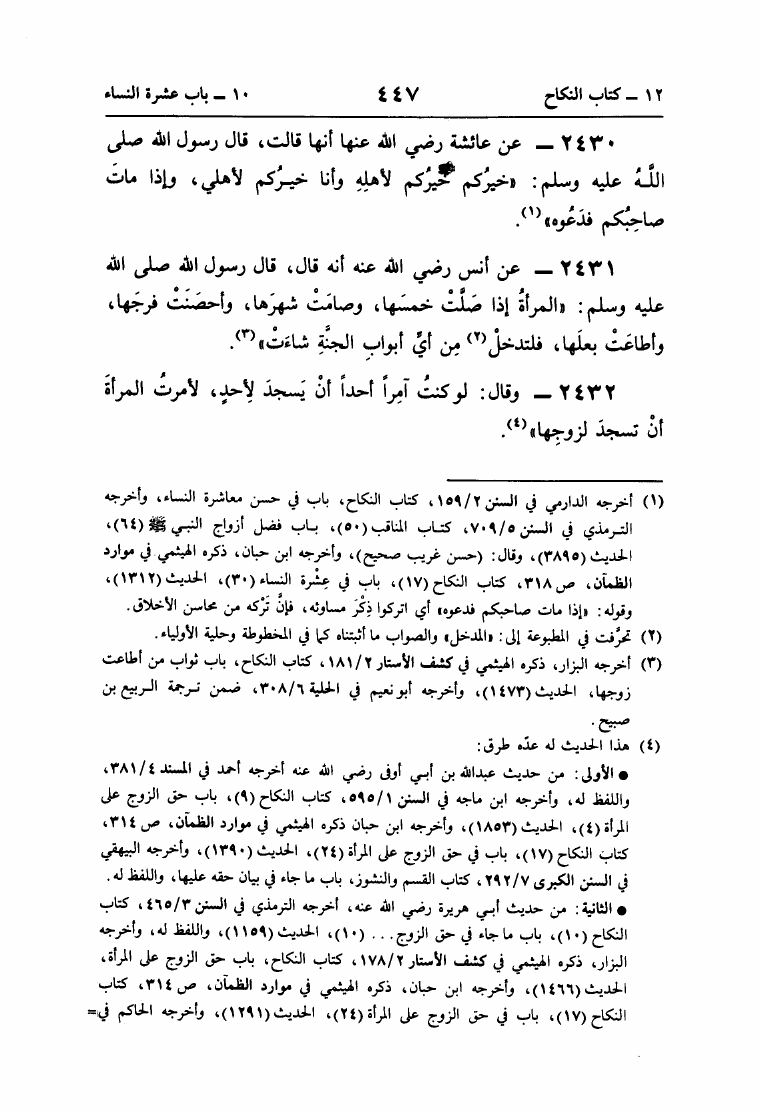 ١٢ ـ كتاب النكاح ٤٤٧ ١٠ ـ باب عشرة النساء
٢٤٣٠ ـ عن عائشة رضي الله عنها أنها قالت، قال رسول الله صلى
اللَّهُ عليه وسلم: «خيرُكم خيرُكم لأهلِهِ وأنا خيرُكم لأهلي، وإذا ماتَ
صاحِبُكم فدَعُوه»(١).
٢٤٣١ ـ عن أنس رضي الله عنه أنه قال، قال رسول الله صلى الله
عليه وسلم: «المرأةُ إذا صَلَّتْ خمسَها، وصامَتْ شهرَها، وأحصَنَتْ فرجَها،
وأطاعَتْ بعلَها، فلتدخلْ(٢) مِن أيِّ أبوابِ الجنَّةِ شاءَتْ»(٣).
٢٤٣٢ ـ وقال: لو كنتُ آمِراً أحداً أنْ يَسجدَ لِأحدٍ، لأمرتُ المرأةَ
أنْ تسجدَ لزوجِها»(٤).
(١) أخرجه الدارمي في السنن ١٥٩/٢، كتاب النكاح، باب في حسن معاشرة النساء، وأخرجه
الترمذي في السنن ٧٠٩/٥، كتاب المناقب (٥٠)، باب فضل أزواج النبي ﷺ (٦٤)،
الحديث (٣٨٩٥)، وقال: (حسن غريب صحيح)، وأخرجه ابن حبان، ذكره الهيثمي في موارد
الظمآن، ص ٣١٨، كتاب النكاح (١٧)، باب في عِشْرة النساء (٣٠)، الحديث (١٣١٢)،
وقوله: «إذا مات صاحبكم فدعوه» أي اتركوا ذِكْرَ مساوئه، فإنَّ تَرْكه من محاسن الأخلاق.
(٢) تحرَّفت في المطبوعة إلى: «المدخل» والصواب ما أثبتناه كما في المخطوطة وحلية الأولياء.
(٣) أخرجه البزار، ذكره الهيثمي في كشف الأستار ١٨١/٢، كتاب النكاح، باب ثواب من أطاعت
زوجها، الحديث (١٤٧٣)، وأخرجه أبو نعيم في الحلية ٣٠٨/٦، ضمن ترجمة الربيع بن
صبيح.
(٤) هذا الحديث له عدّه طرق:
● الأولى: من حديث عبدالله بن أبي أوفى رضي الله عنه أخرجه أحمد في المسند ٣٨١/٤،
واللفظ له، وأخرجه ابن ماجه في السنن ٥٩٥/١، كتاب النكاح (٩)، باب حق الزوج على
المرأة (٤)، الحديث (١٨٥٣)، وأخرجه ابن حبان ذكره الهيثمي في موارد الظمآن، ص ٣١٤،
كتاب النكاح (١٧)، باب في حق الزوج على المرأة (٢٤)، الحديث (١٣٩٠)، وأخرجه البيهقي
في السنن الكبرى ٢٩٢/٧، كتاب القسم والنشوز، باب ما جاء في بيان حقه عليها، واللفظ له.
● الثانية: من حديث أبي هريرة رضي الله عنه، أخرجه الترمذي في السنن ٤٦٥/٣، كتاب
النكاح (١٠)، باب ما جاء في حق الزوج... (١٠)، الحديث (١١٥٩)، واللفظ له، وأخرجه
البزار، ذكره الهيثمي في كشف الأستار ١٧٨/٢، كتاب النكاح، باب حق الزوج على المرأة،
الحديث (١٤٦٦)، وأخرجه ابن حبان، ذكره الهيثمي في موارد الظمآن، ص ٣١٤، كتاب
النكاح (١٧)، باب في حق الزوج على المرأة (٢٤)، الحديث (١٢٩١)، وأخرجه الحاكم في=